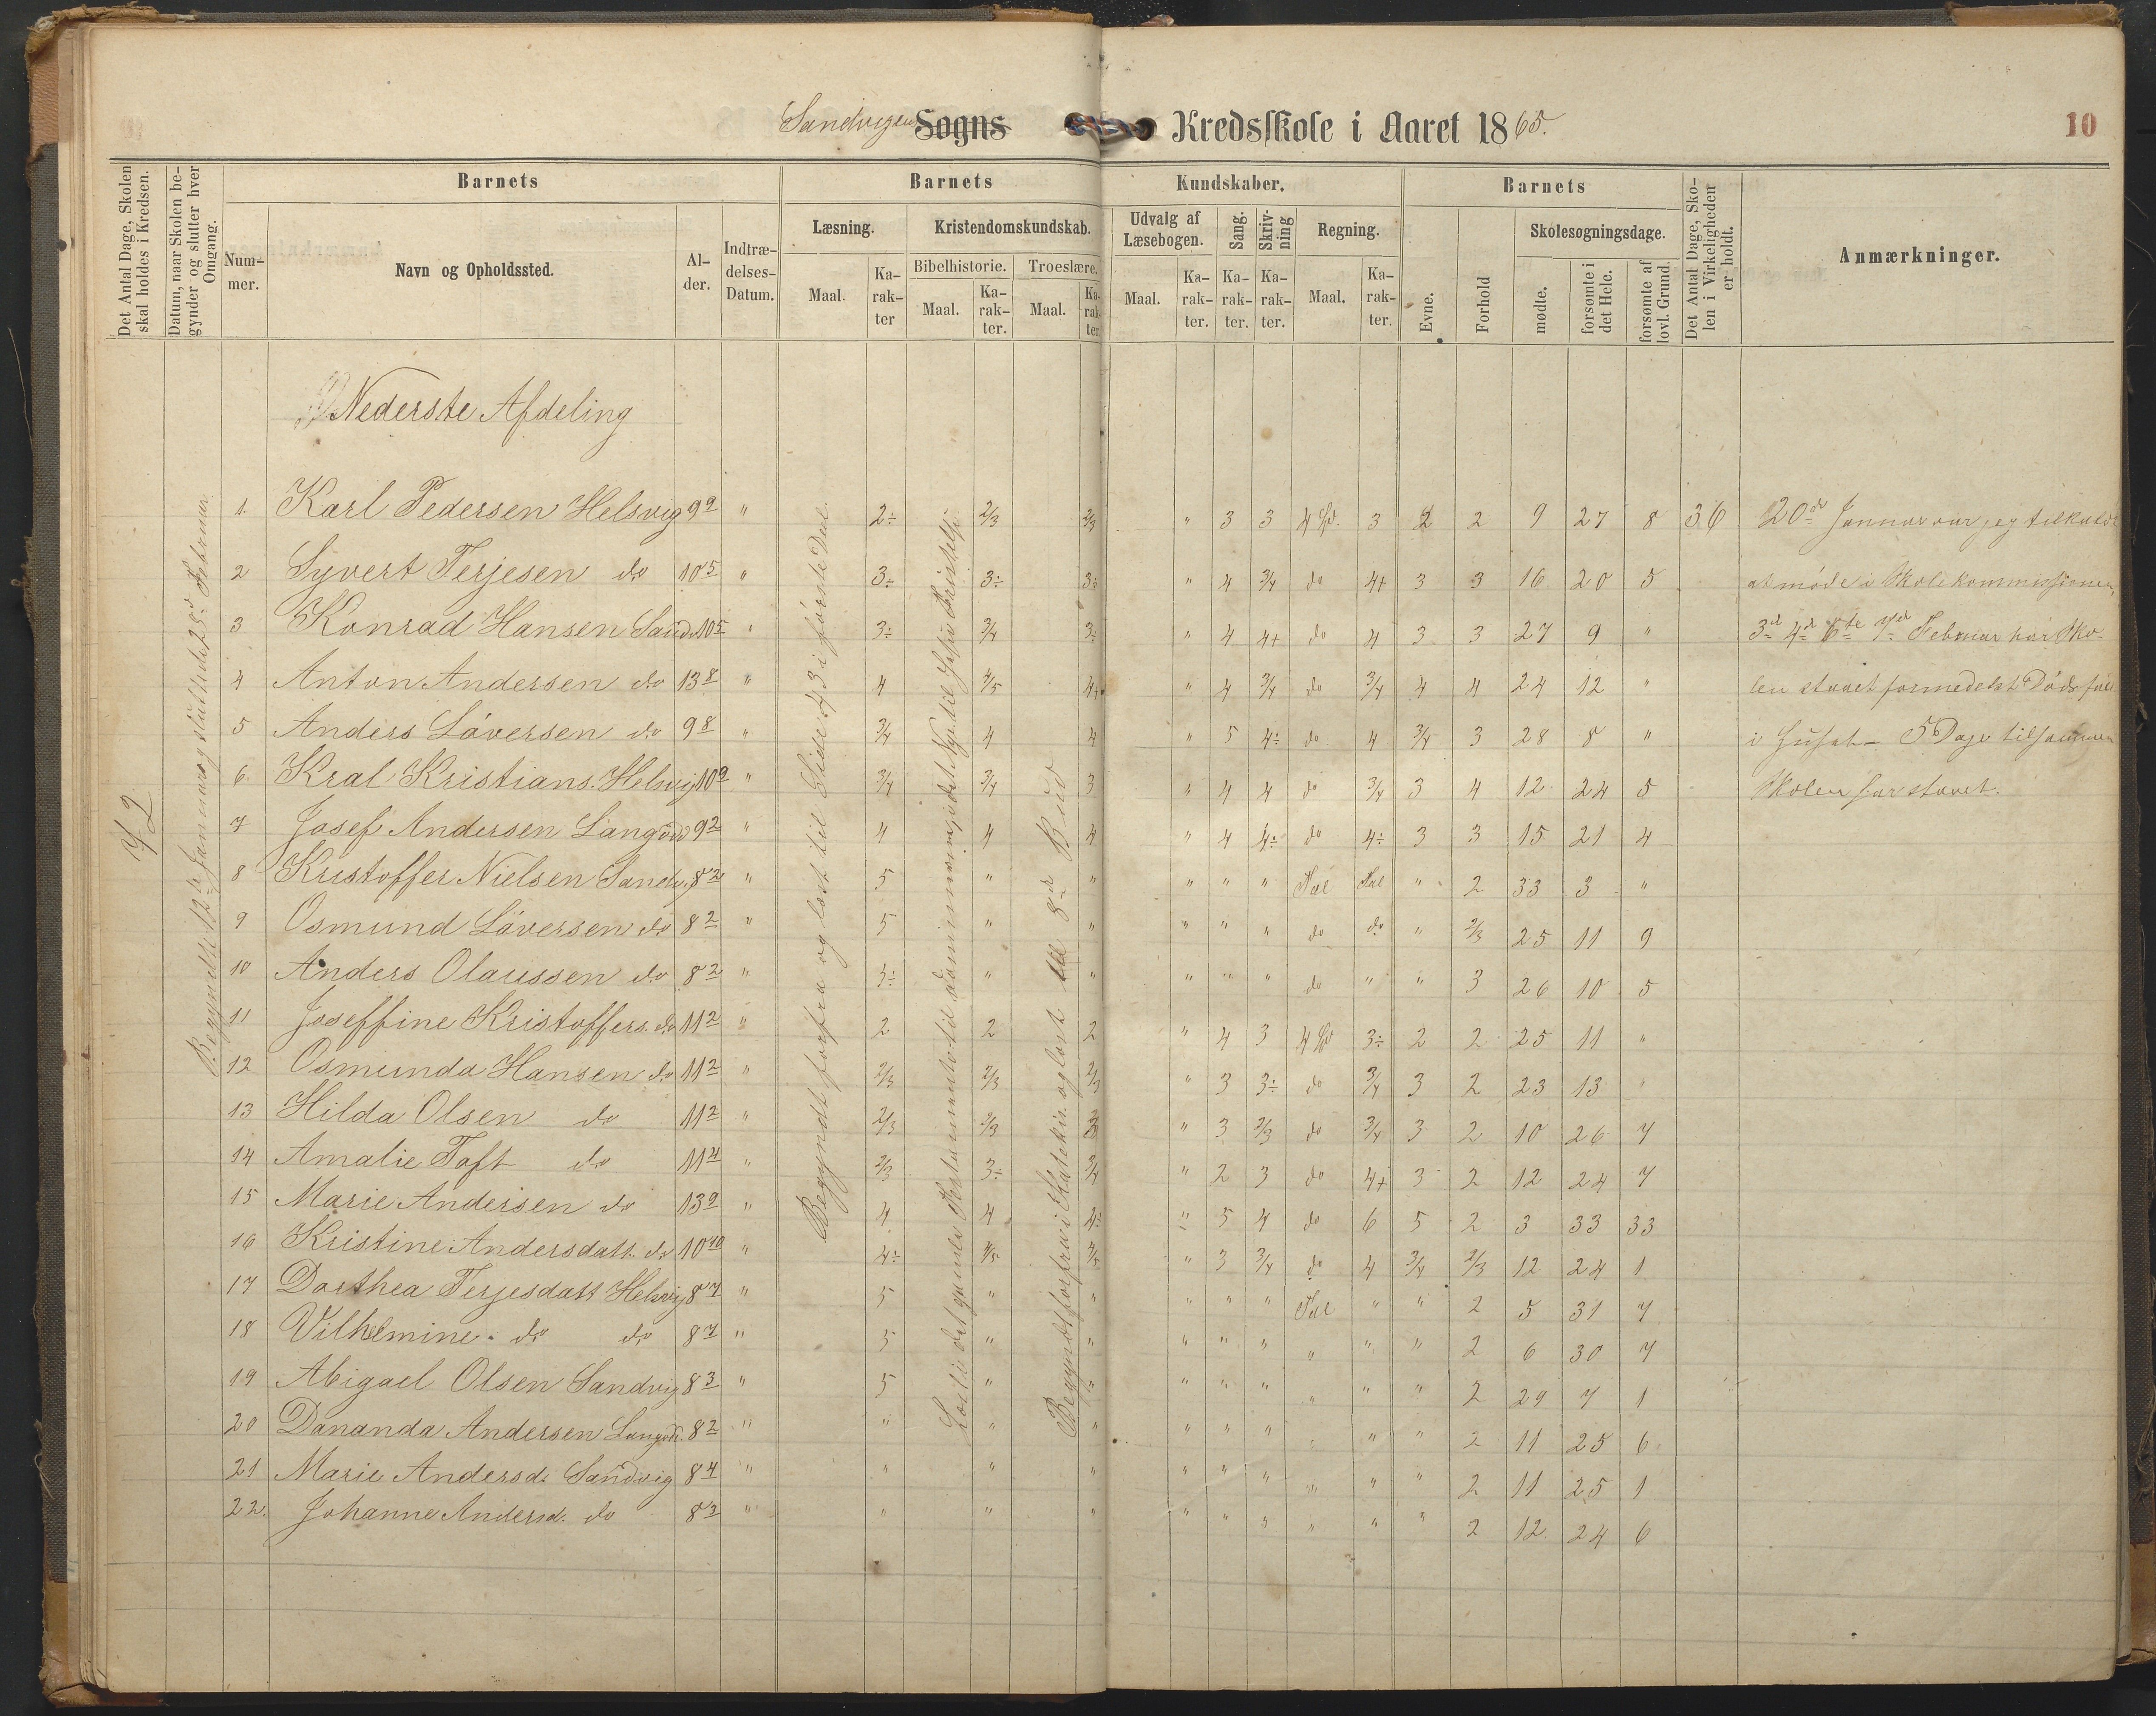 Sandvigens Sogns Kredsskole i Aaret 1865.
10
Det Antal Dage, Skolen skal holdes i Kredsen.
Datum, naar Skolen begynder og slutter hver Omgang.
Barnets
Nummer.
Navn og Opholdssted.
Alder.
Indtrædelses-Datum.
Barnets Kundskaber.
Læsning.
Maal.
Karakter
Kristendomskundskab.
Bibelhistorie.
Maal.
Karakter.
Troeslære.
Maal.
Karakter.
Udvalg af Læsebogen.
Maal.
Karakter.
Sang.
Karakter.
Skrivning
Karakter.
Regning.
Maal.
Karakter.
Barnets
Evne.
Forhold
Skolesøgningsdage.
mødte.
forsømte i det Hele.
forsømte af lovl. Grund.
Det Antal Dage, Skolen i Virkeligheden er holdt.
Anmærkninger.
Nederste Afdeling
1. Karl Pedersen Helsvig 9 9 " 2÷ 2/3 2/3 " 3 3 4 Sp. 3 2 2 9 27 8 36
2 Syvert Terjesen do 10 5 " 3÷ 3÷ 3÷ " 4 3/4 do 4+ 3 3 16 20 5
3 Konrad Hansen Sandv 10 5 " 3÷ 3/4 3÷ " 4 4+ do 4 3 3 27 9 "
4 Anton Andersen do 13 8 " 4 4/5 4+ " 4 3/4 do 3/4 4 4 24 12 "
5 Anders Låversen do 9 8 " 3/4 4 4 " 5 4÷ do 4 3/4 3 28 8 "
6. Kral Kristians. Helsvig 10 9 " 3/4 3/4 3 " 4 4 do 3/4 3 4 12 24 5
7 Josef Andersen Langødd 9 2 " 4 4 4 " 4 4÷ do 4÷ 3 3 15 21 4
8 Kristoffer Nielsen Sandv. 8 2 " 5 " " " " " Tal Tal " 2 33 3 "
9 Osmund Låversen do 8 2 " 5 " " " " " do do " 2/3 25 11 9
10 Anders Olaussen do 8 2 " 5÷ " " " " " do " " 3 26 10 5
11 Joseffine Kristoffers. do 11 2 " 2 2 2 " 4 3 4 Sp 3÷ 2 2 25 11 "
12 Osmunda Hansen do 11 2 " 2/3 2/3 2/3 " 3 3÷ do 3/4 3 2 23 13 "
13 Hilda Olsen do 11 2 " 2/3 2/3 3 " 3 2/3 do 3/4 3 2 10 26 7
14 Amalie Toft do 11 4 " 2/3 3÷ 3/4 " 2 3 do 4+ 3 2 12 24 7
15 Marie Andersen do 13 9 " 4 4 4÷ " 5 4 do 6 5 2 3 33 33
16 Kristine Andersdatt. do 10 10 " 4÷ 4/5 4/5 " 3 3/4 do 4 3/4 2/3 12 24 1
17 Dorthea Terjesdatt Helsvig 8 7 " 5 " " " " " Tal " " 2 5 31 7
18 Vilhelmine do do 8 7 " 5 " " " " " " " " 2 6 30 7
19 Abigael Olsen Sandvig 8 3 " 5 " " " " " " " " 2 29 7 1
20 Dananda Andersen Langødd 8 2 " " " " " " " " " " 2 11 25 6
21 Marie Andersd. Sandvig 8 4 " " " " " " " " " " 2 11 25 1
22. Johanne Andersd. do 8 3 " " " " " " " " " " 2 12 24 6
Begyndte 12te Januar og sluttede 25de Februar
Begyndt forfra og læst til Side 43 i første Deel.
Begyndt forfra i Katekis. og læst til 8de Bud
20de Januar var jeg tilkaldt
at møde i Skolekommissionen,
3de 4de 6te 7de Februar har Sko-
len stået formedelst Dødsfald
i Huset – 5 Dage tilsammen
Skolen har stået.